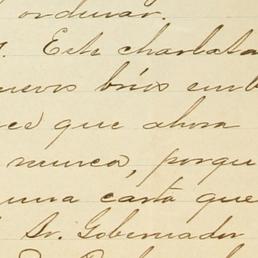 ordenar.
. Este charlata
nuevos bríos emb
ce que ahora
nunca, porque
una carta que
Sr. Gobernador